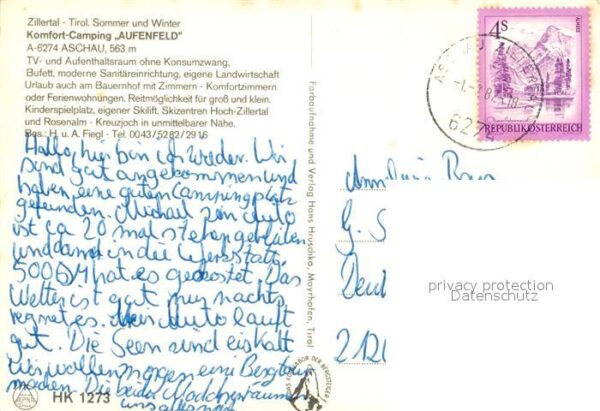 Zillertal - Tirol. Sommer und Winter
Komfort-Camping „AUFENFELD"
A-6274 ASCHAU, 563 m
TV- und Aufenthaltsraum ohne Konsumzwang,
Bufett, moderne Sanitäreinrichtung, eigene Landwirtschaft
Urlaub auch am Bauernhof mit Zimmern - Komfortzimmern
oder Ferienwohnungen. Reitmöglichkeit für groß und klein.
Kinderspielplatz, eigener Skilift. Skizentren Hoch-Zillertal
und Rosenalm - Kreuzjoch in unmittelbarer Nähe.
Bes.: H. u. A. Fiegl - Tel. 0043/5282/2916
Hallo, hier bin ich wieder. Wir
sind gut angekommen und
haben eine guten Campingplatz
gefunden. Michael sein Auto
ist ca 20 mal stehengeblieben
und dann in die Werkstatt.
500 DM hat es gekostet. Das
Wetter ist gut nur nachts
regnet es. Mein Auto läuft
gut. Die Seen sind eiskalt
wir wollen morgen eine Bergtour
machen. Die beiden Mädchen räumen
uns alles nach
HK 1273
Farbaufnahme und Verlag Hans Hruschka, Mayrhofen, Tirol
DAS EDELLABOR DER BERGSTEIGER
4S
ALMSEE
REPUBLIK ÖSTERREICH
6274
G. S
Deut
212
privacy protection
Datenschutz